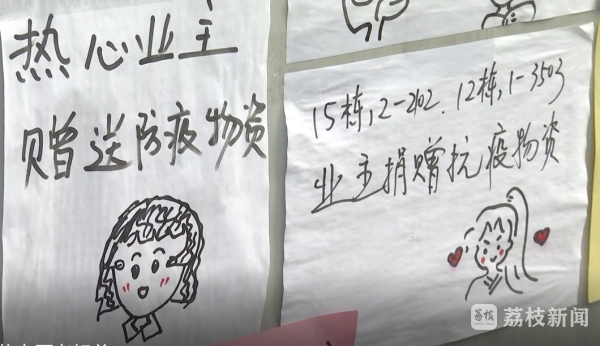 热心业主
赠送防疫物资
15栋,2-2102.12栋,1-3503
业主捐赠抗疫物资
荔枝
荔枝新闻